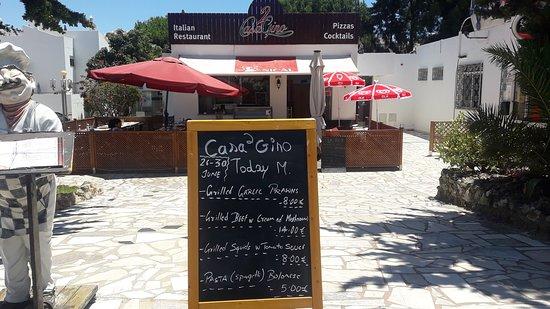 Italian
Restaurant
Casa Gino
Pizzas
Cocktails
Casa Gino
21-30
JUNE
Today M.
- Grilled GARLIC PRAWNS
- 8.00€
- Grilled BEEF w Cream ed Mushroom
- 14.00€
- Grilled Squids w Tomato Sauce
- 8.00€
- PASTA (spagetti) Bolonese
- 5.00€